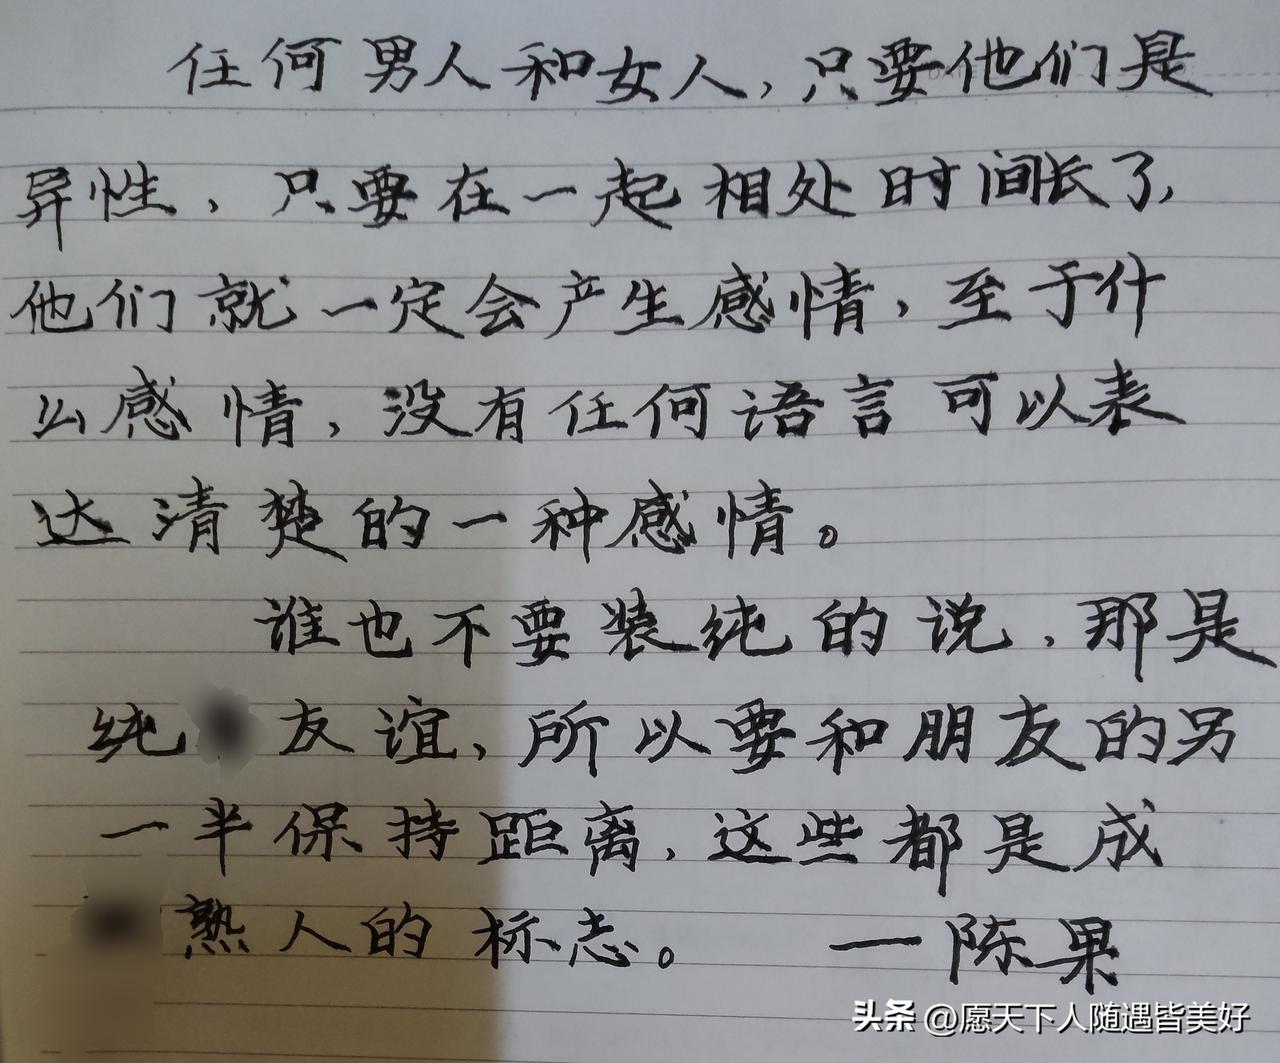 任何男人和女人,只要他们是
异性,只要在一起相处时间长了,
他们就一定会产生感情,至于什
么感情,没有任何语言可以表
达清楚的一种感情。
谁也不要装纯的说,那是
纯友谊,所以要和朋友的另
一半保持距离,这些都是成
熟人的标志。 —陈果
头条 @愿天下人随遇皆美好